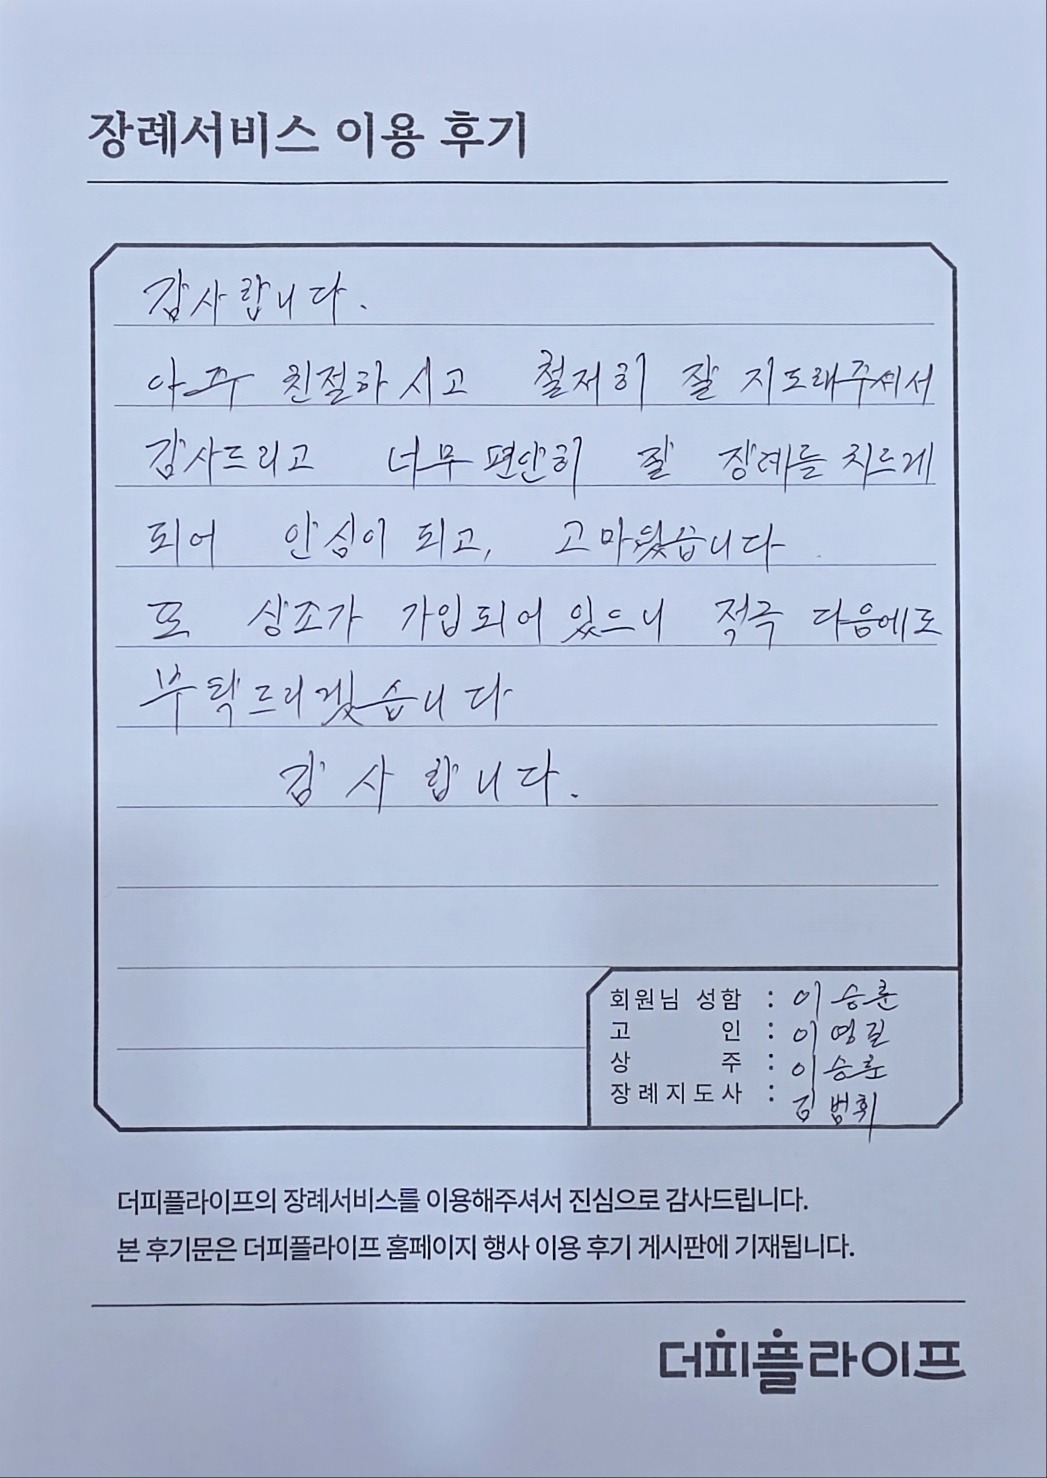 장례서비스 이용 후기
감사합니다.
아주 친절하시고 철저히 잘 지도해주셔서
감사드리고 너무 편안히 잘 장례를 치르게
되어 안심이 되고, 고마웠습니다
또 상조가 가입되어 있으니 적극 다음에도
부탁드리겠습니다
감사합니다.
회원님 성함 : 이승훈
고 인 : 이영길
상 주 : 이승훈
장례지도사 : 김범휘
더피플라이프의 장례서비스를 이용해주셔서 진심으로 감사드립니다.
본 후기문은 더피플라이프 홈페이지 행사 이용 후기 게시판에 기재됩니다.
더피플라이프